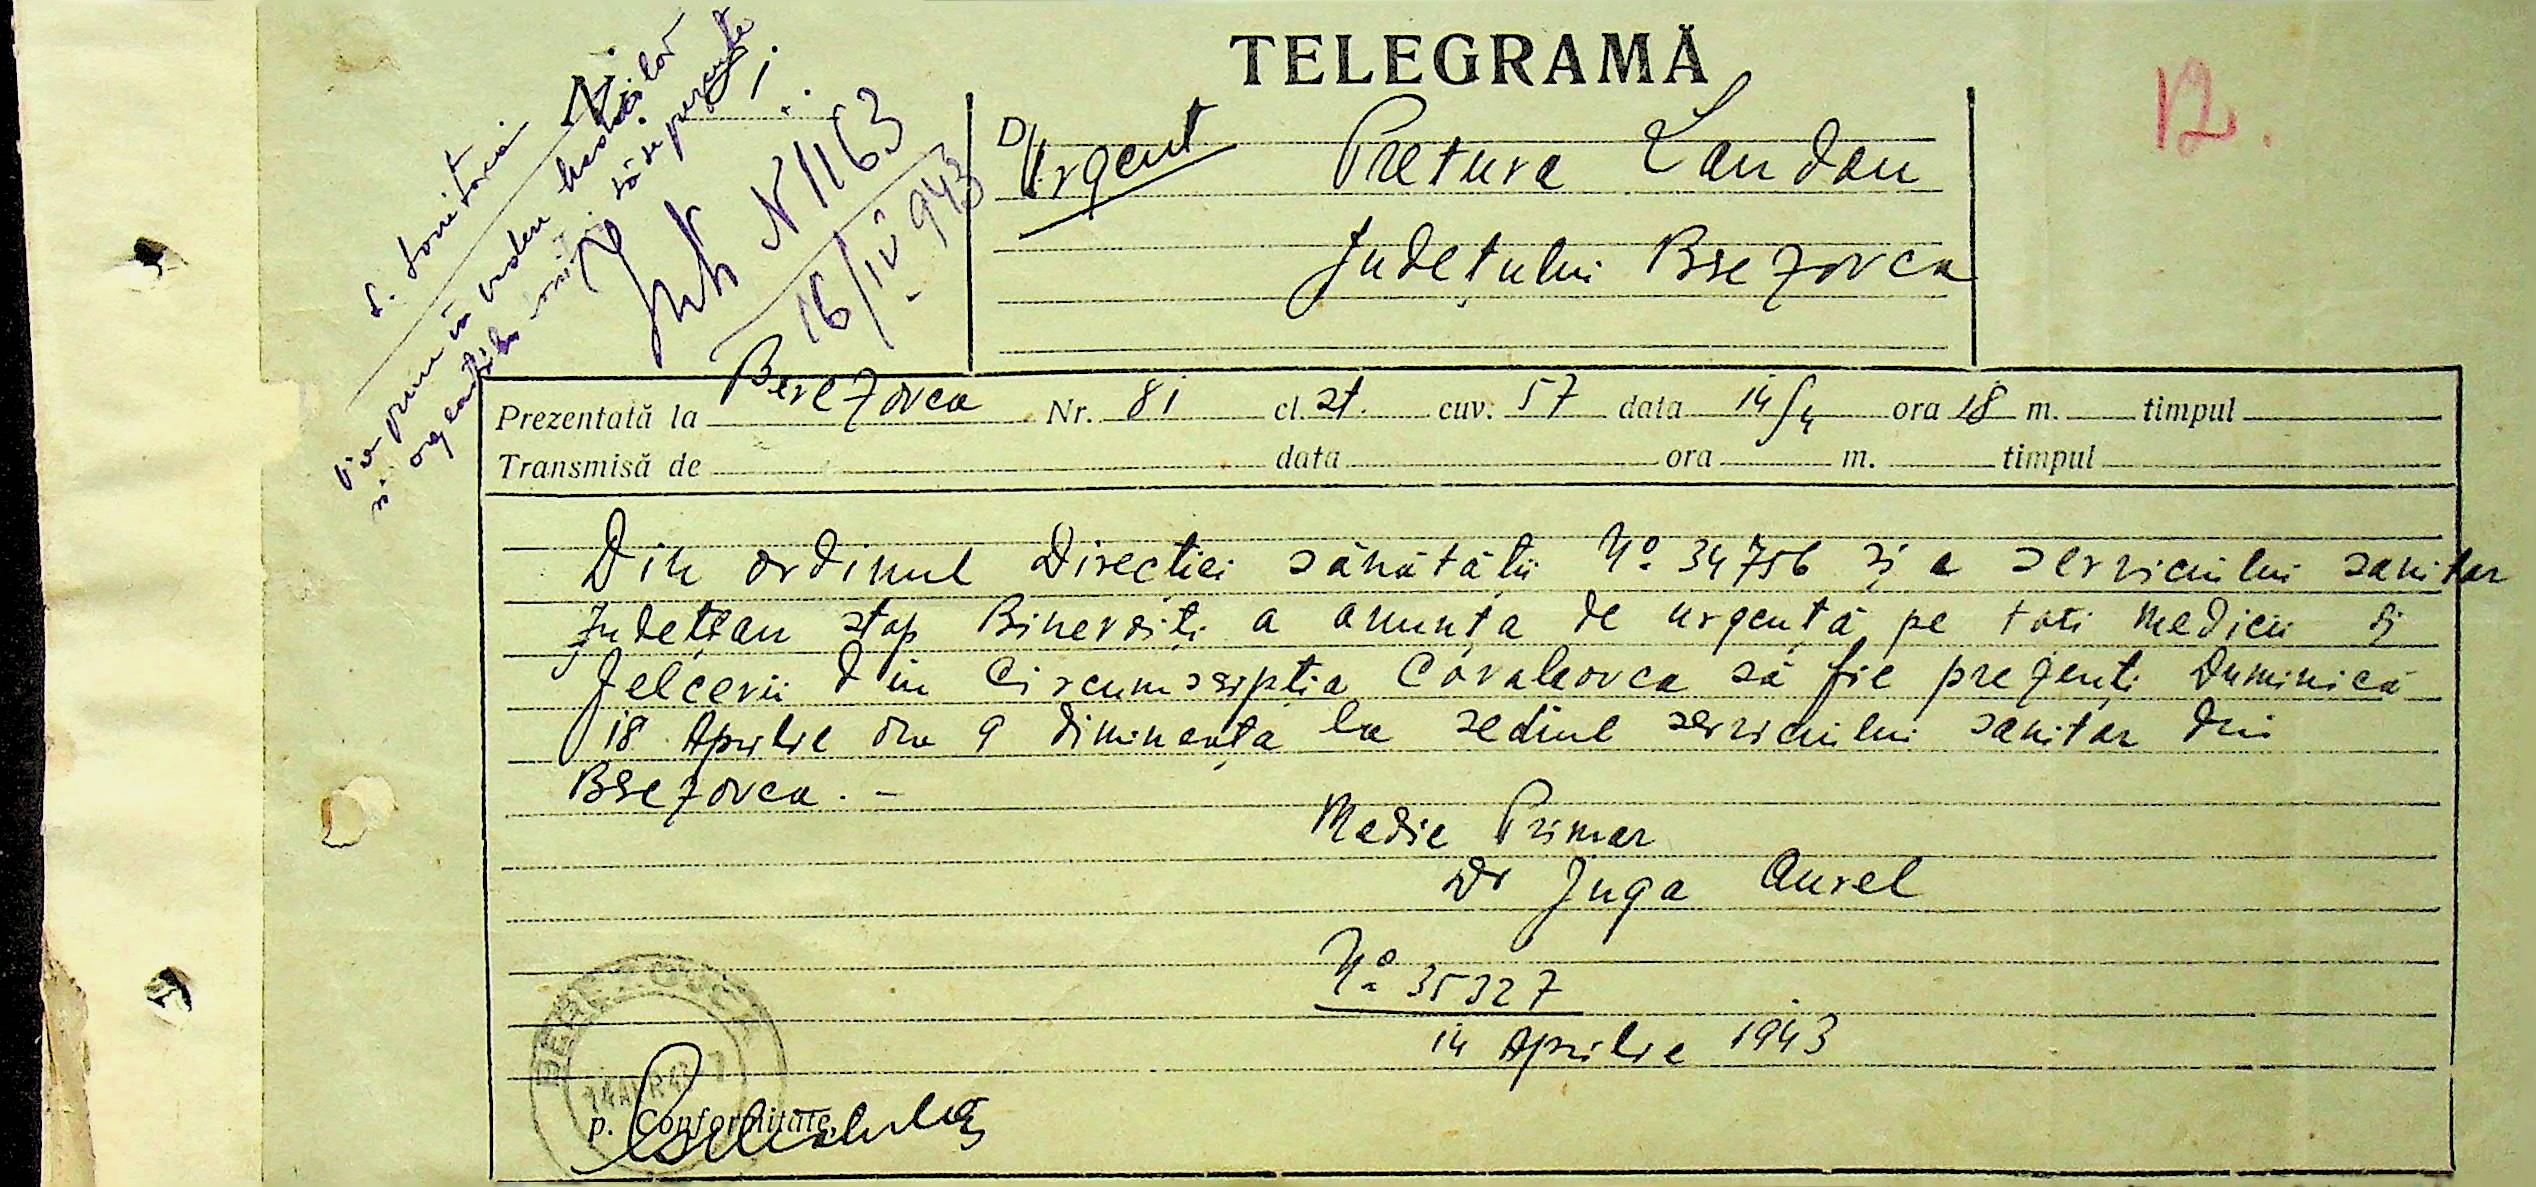 TELEGRAMĂ
12.
S. Sanitaria
Intr. N 1163
16/IV 943
D Urgent Pretura Landau
Județului Bsezovca
Prezentată la Berezovca Nr. 81 cl. st. cuv. 57 data 14/4 ora 18 m. timpul
Transmisă de data ora m. timpul
Din ordinul Direcției sănătății No. 34756 și a serviciului sanitar
Județean stop Binevoiți a anunța de urgență pe toți medicii și
felcerii din Circumscripția Covaleovca să fie prezenți Duminică
18 Aprilie ora 9 dimineața la sediul serviciului sanitar din
Bsezovca. -
Medic Primar
Dr Juga Aurel
No. 35327
14 Aprilie 1943
BEREZOVCA
14 APR 43 7
p. Conformitate